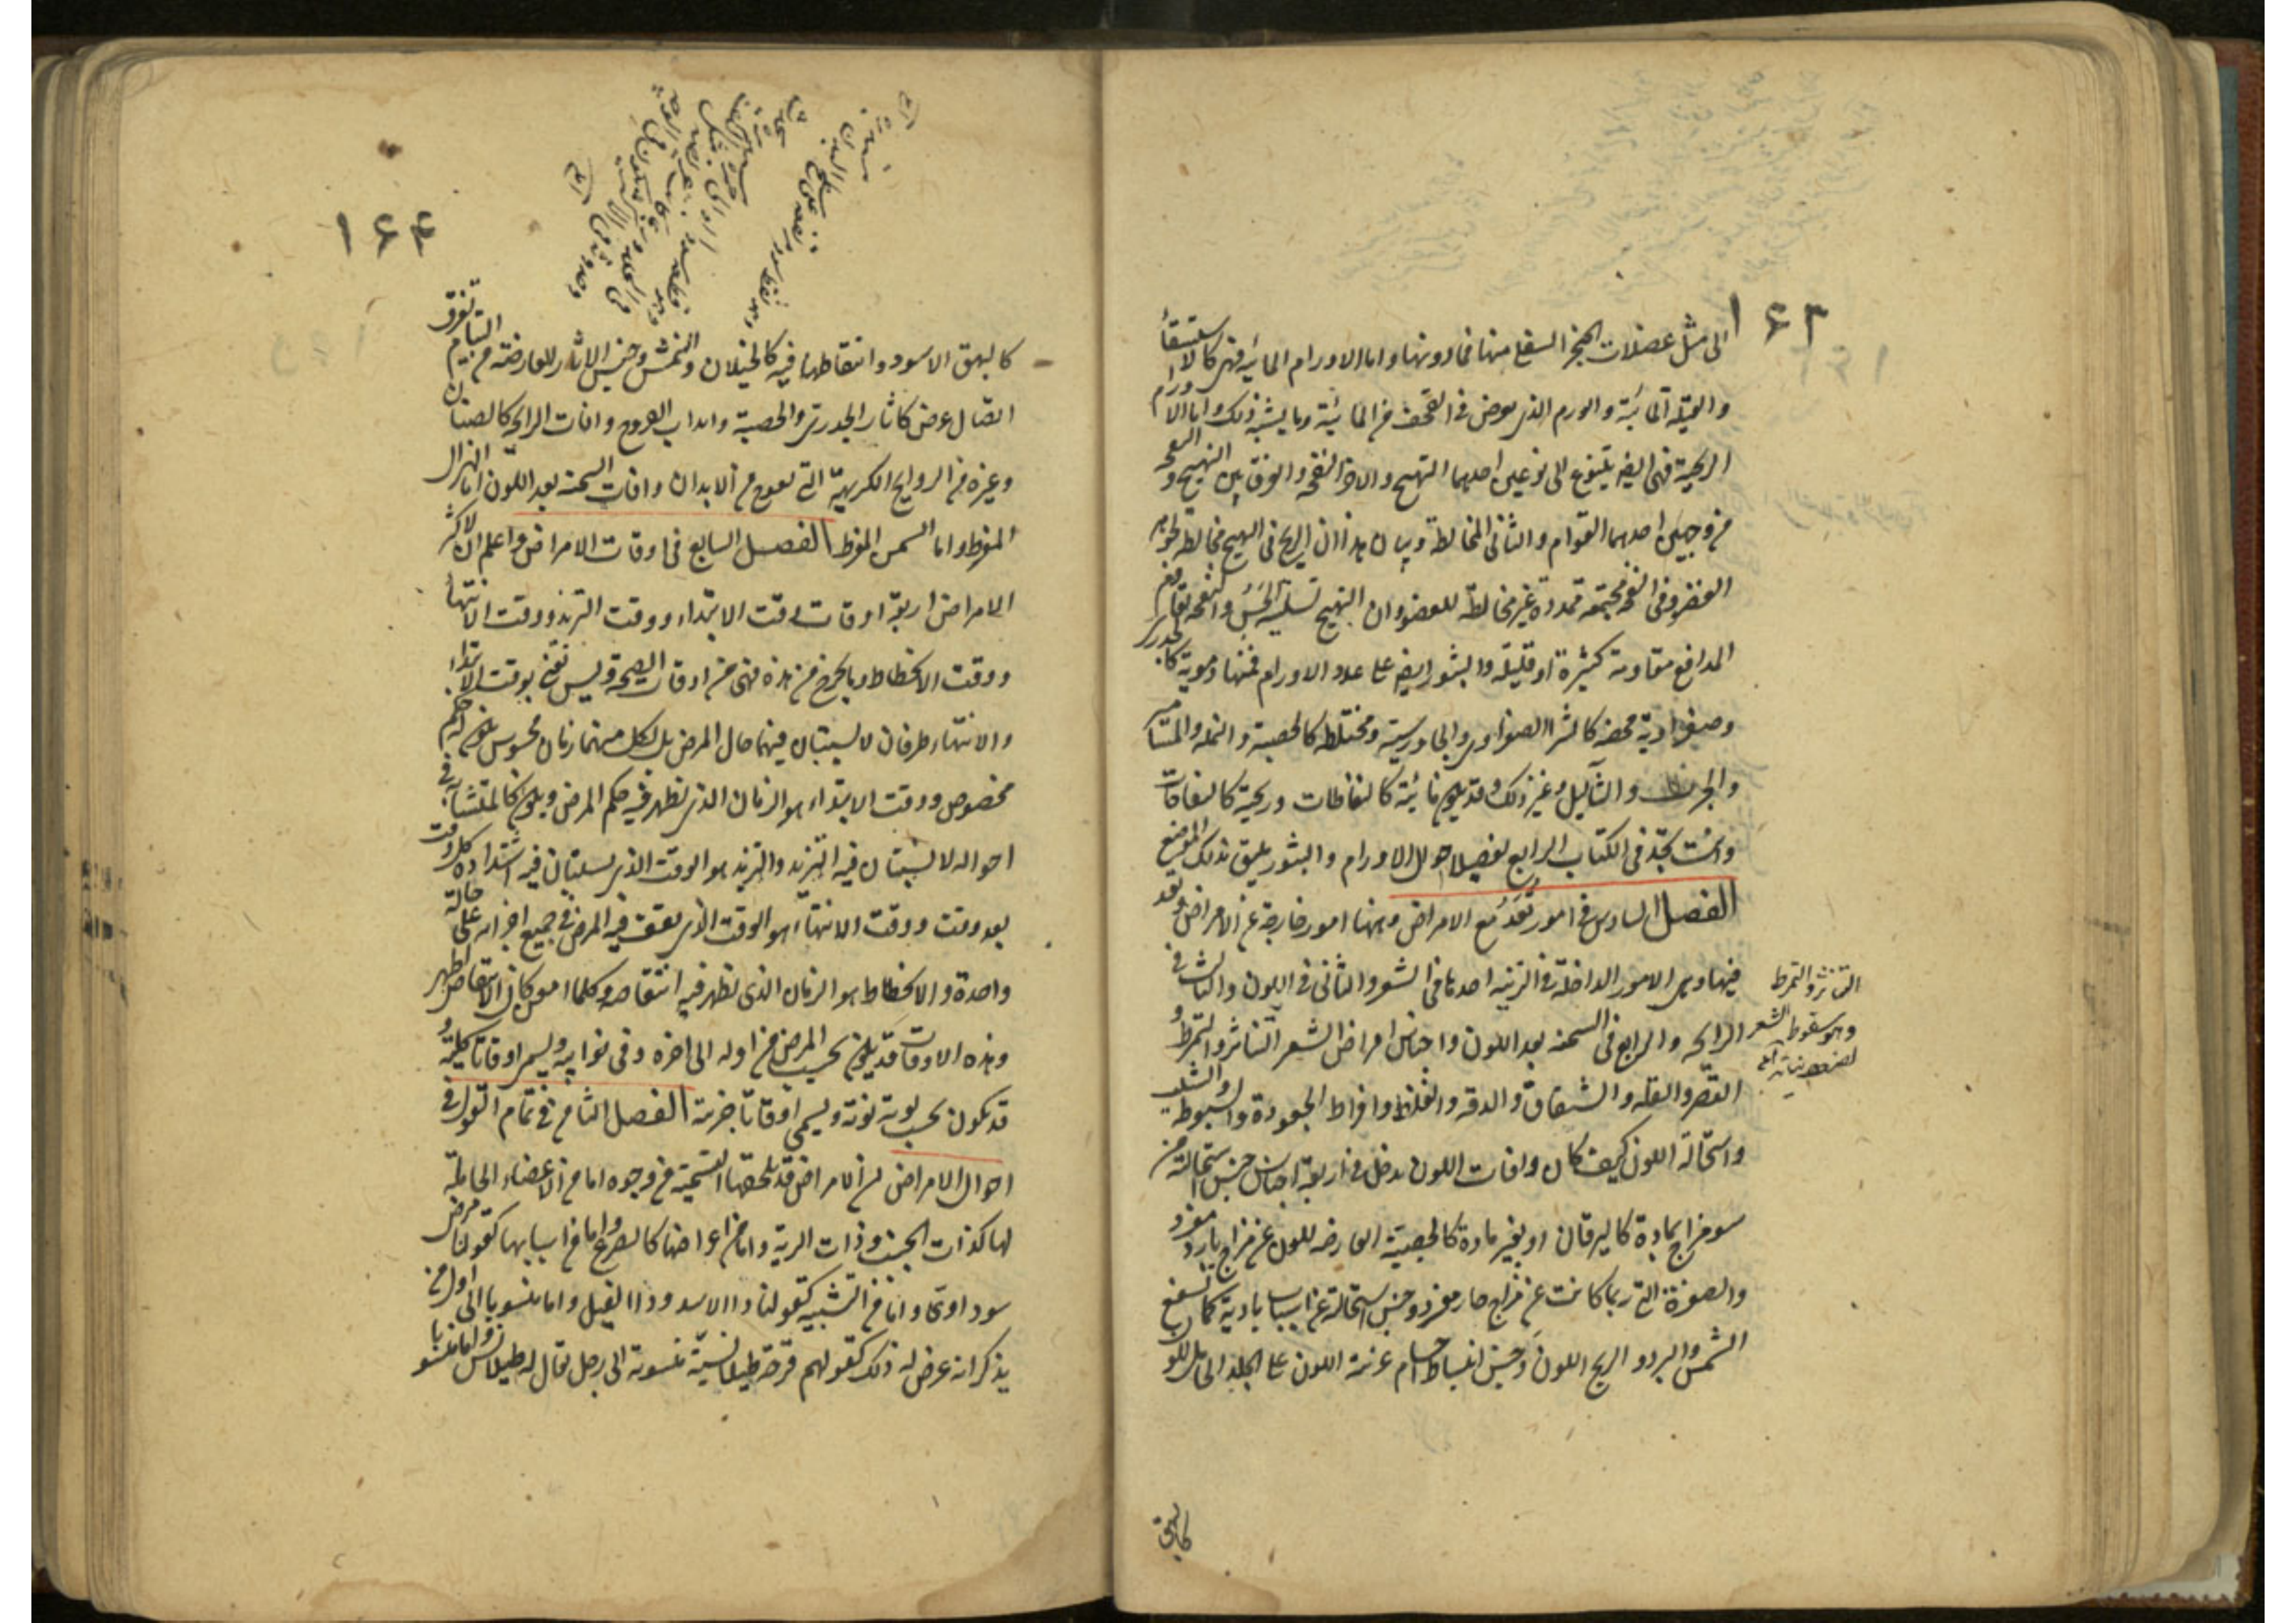 ١٦٣
الى مثل عضلات الحنجرة السفلى منها فما دونها واما الاورام المائية فهى كالاستسقاء
والقيلة المائية والورم الذى يعرض فى القحف من المائية وما يشبه ذلك واما الاورام
الريحية فهى ايضا يتنوع الى نوعين احدهما التهيج والاخر النفخة والفرق بين التهيج والنفخة
من وجهين احدهما القوام والثانى المخالطة وبيان هذا ان الريح فى التهيج مخالطة لجوهر
العضو وفى النفخة مجتمعة ممددة غير مخالطة للعضو وان التهيج يستلينه الحس والنفخة تقاوم
المدافع مقاومة كثيرة او قليلة والبثور ايضا على عدد الاورام فمنها دموية كالجدرى
وصفراوية محضة كالشرا الصفراوى والجاورسية ومختلطة كالحصبة والنملة والمسامير
والجرب والثآليل وغير ذلك وقد يكون مائية كالنفاطات وريحية كالنفاخات
وانت تجد فى الكتاب الرابع تفصيلا لاحوال الاورام والبثور يليق بذلك الموضع
الفصل السادس فى امور تعد مع الامراض وههنا امور خارجة عن الامراض وتعد
فيها وهى الامور الداخلة فى الزينة احدها فى الشعر والثانى فى اللون والثالث فى
الرائحة والرابع فى السحنة بعد اللون واجناس امراض الشعر التناثر والتمرط و
القصر والقلة والشقاق والدقة والغلظ وافراط الجعودة والسبوطة والشيب
واستحالة اللون كيف كان وافات اللون يدخل فى اربعة اجناس جنس استحالته من
سو مزاج بمادة كاليرقان او بغير مادة كالجصية العارضة للون عن مزاج بارد مفرد
والصفرة التى ربما كانت عن مزاج حار مفرد وجنس استحالته عن اسباب بادية كما تسفع
الشمس والبرد والريح اللون وجنس انبساط اجسام غريبة اللون على الجلد الحامل للون
التناثر والتمرط
وهو سقوط الشعر
كالبهق
١٦٤
كالبهق الاسود وانتقاطها فيه كالخيلان والنمش وجنس الاثار العارضة من التيام تفرق
اتصال عرض كاثار الجدرى والحصبة وانداب القروح وافات الرائحة كالصنان
وغيره من الروايح الكريهة التى تفوح من الابدان وافات السحنة بعد اللون اما الهزال
المفرط واما السمن المفرط الفصل السابع فى اوقات الامراض واعلم ان لاكثر
الامراض اربعة اوقات وقت الابتداء ووقت التزيد ووقت الانتهاء
ووقت الانحطاط وما يخرج من هذه فهى من اوقات الصحة وليس نعنى بوقت الابتداء
والانتهاء طرفان لا يستبان فيهما حال المرض بل لكل منهما زمان محسوس يكون له حكم
مخصوص ووقت الابتداء هو الزمان الذى يظهر فيه حكم المرض ويكون كالمتشابه فى
احواله لا يستبان فيه التزيد والتزيد هو الوقت الذى يستبان فيه اشتداده كل وقت
بعد وقت ووقت الانتهاء هو الوقت الذى يقف فيه المرض فى جميع اجزائه على حالة
واحدة والانحطاط هو الزمان الذى يظهر فيه انتقاصه وكلما امعن كان الانتقاص اظهر
وهذه الاوقات قد يكون بحسب المرض من اوله الى اخره وفى نوائبه ويسمى اوقاتا كلية و
قد تكون بحسب نوبة نوبة ويسمى اوقاتا جزئية الفصل الثامن فى تمام القول فى
احوال الامراض ان الامراض قد يلحقها التسمية من وجوه اما من الاعضاء الحاملة
لها كذات الجنب وذات الرية واما من اعراضها كالصرع واما من اسبابها كقولنا مرض
سوداوى واما من التشبيه كقولنا داء الاسد وداء الفيل واما منسوبا الى اول من
يذكر انه عرض له ذلك كقولهم قرحة طيلانسية منسوبة الى رجل يقال له طيلانس واما منسوبا